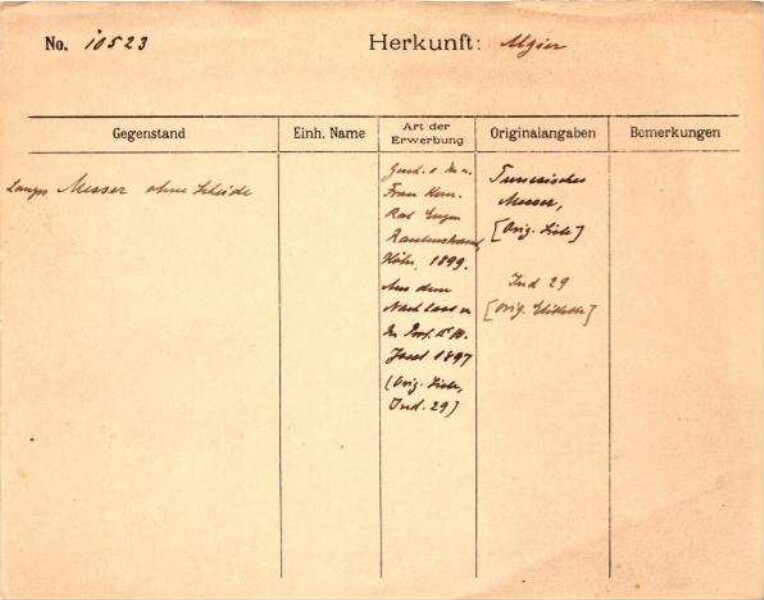 No. 10523
Herkunft: Algier
Gegenstand
Einh. Name
Art der Erwerbung
Originalangaben
Bemerkungen
Langes Messer ohne Scheide
Gesch. v. H. u.
Frau Kom.
Rat Eugen
Rautenstrauch,
Köln, 1899.
Aus dem
Nachlass v.
H. Prof. Dr W.
Joest 1897
(Orig. Liste,
Ind. 29)
Tunesisches
Messer,
[Orig. Liste]
Ind 29
[Orig. Etikette]